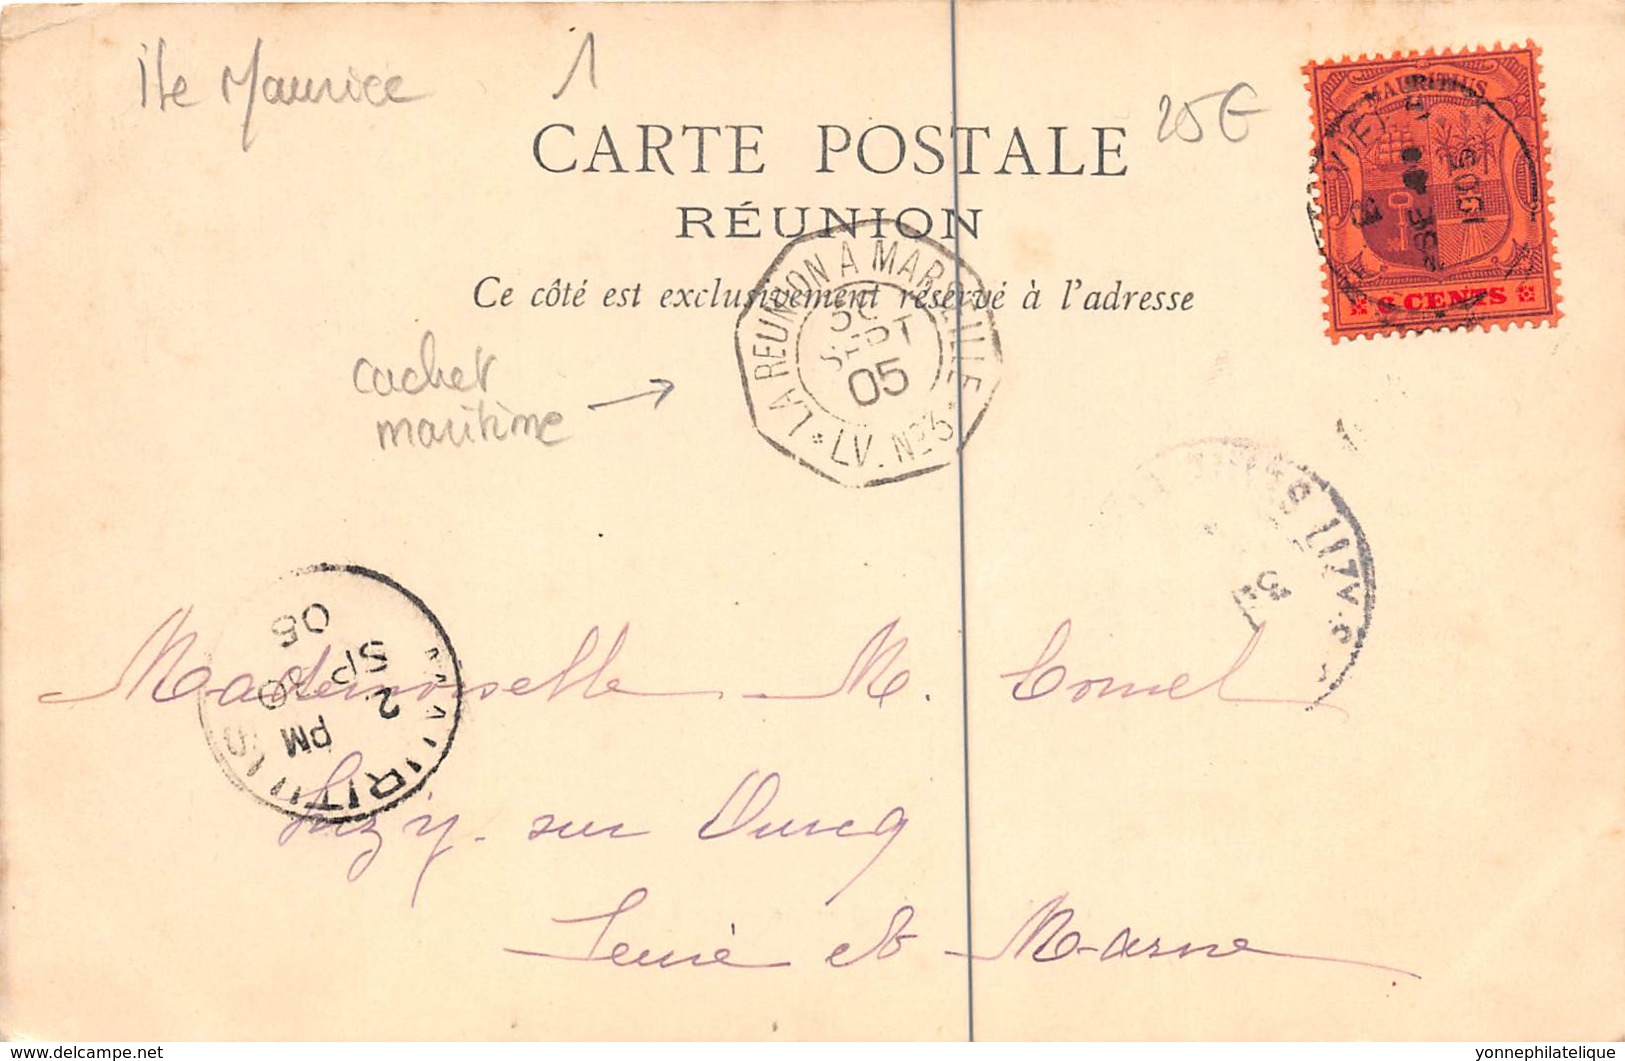 Ile Maurice
1
25€
CARTE POSTALE
RÉUNION
Ce côté est exclusivement réservé à l'adresse
MAURITIUS
6 CENTS
1905
LA REUNION A MARSEILLE
SEPT
05
* LV. No3 *
cachet
maritime
MAURITIUS
2. PM
SP 30
05
Mademoiselle M. Cornel
Lizy-sur Ourcq
Seine et Marne
yonnephilatelie.com